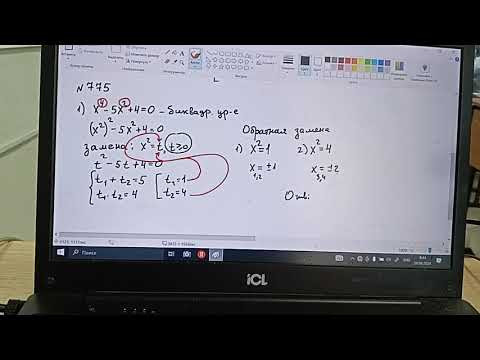 N 775
1) x⁴ - 5x² + 4 = 0 - биквадр. ур-е
(x²)² - 5x² + 4 = 0
замена: x² = t, t ≥ 0
t² - 5t + 4 = 0
t₁ + t₂ = 5
t₁ · t₂ = 4
t₁ = 1
t₂ = 4
Обратная замена
1) x² = 1
x₁,₂ = ±1
2) x² = 4
x₃,₄ = ±2
Отв:
Поиск
iCL